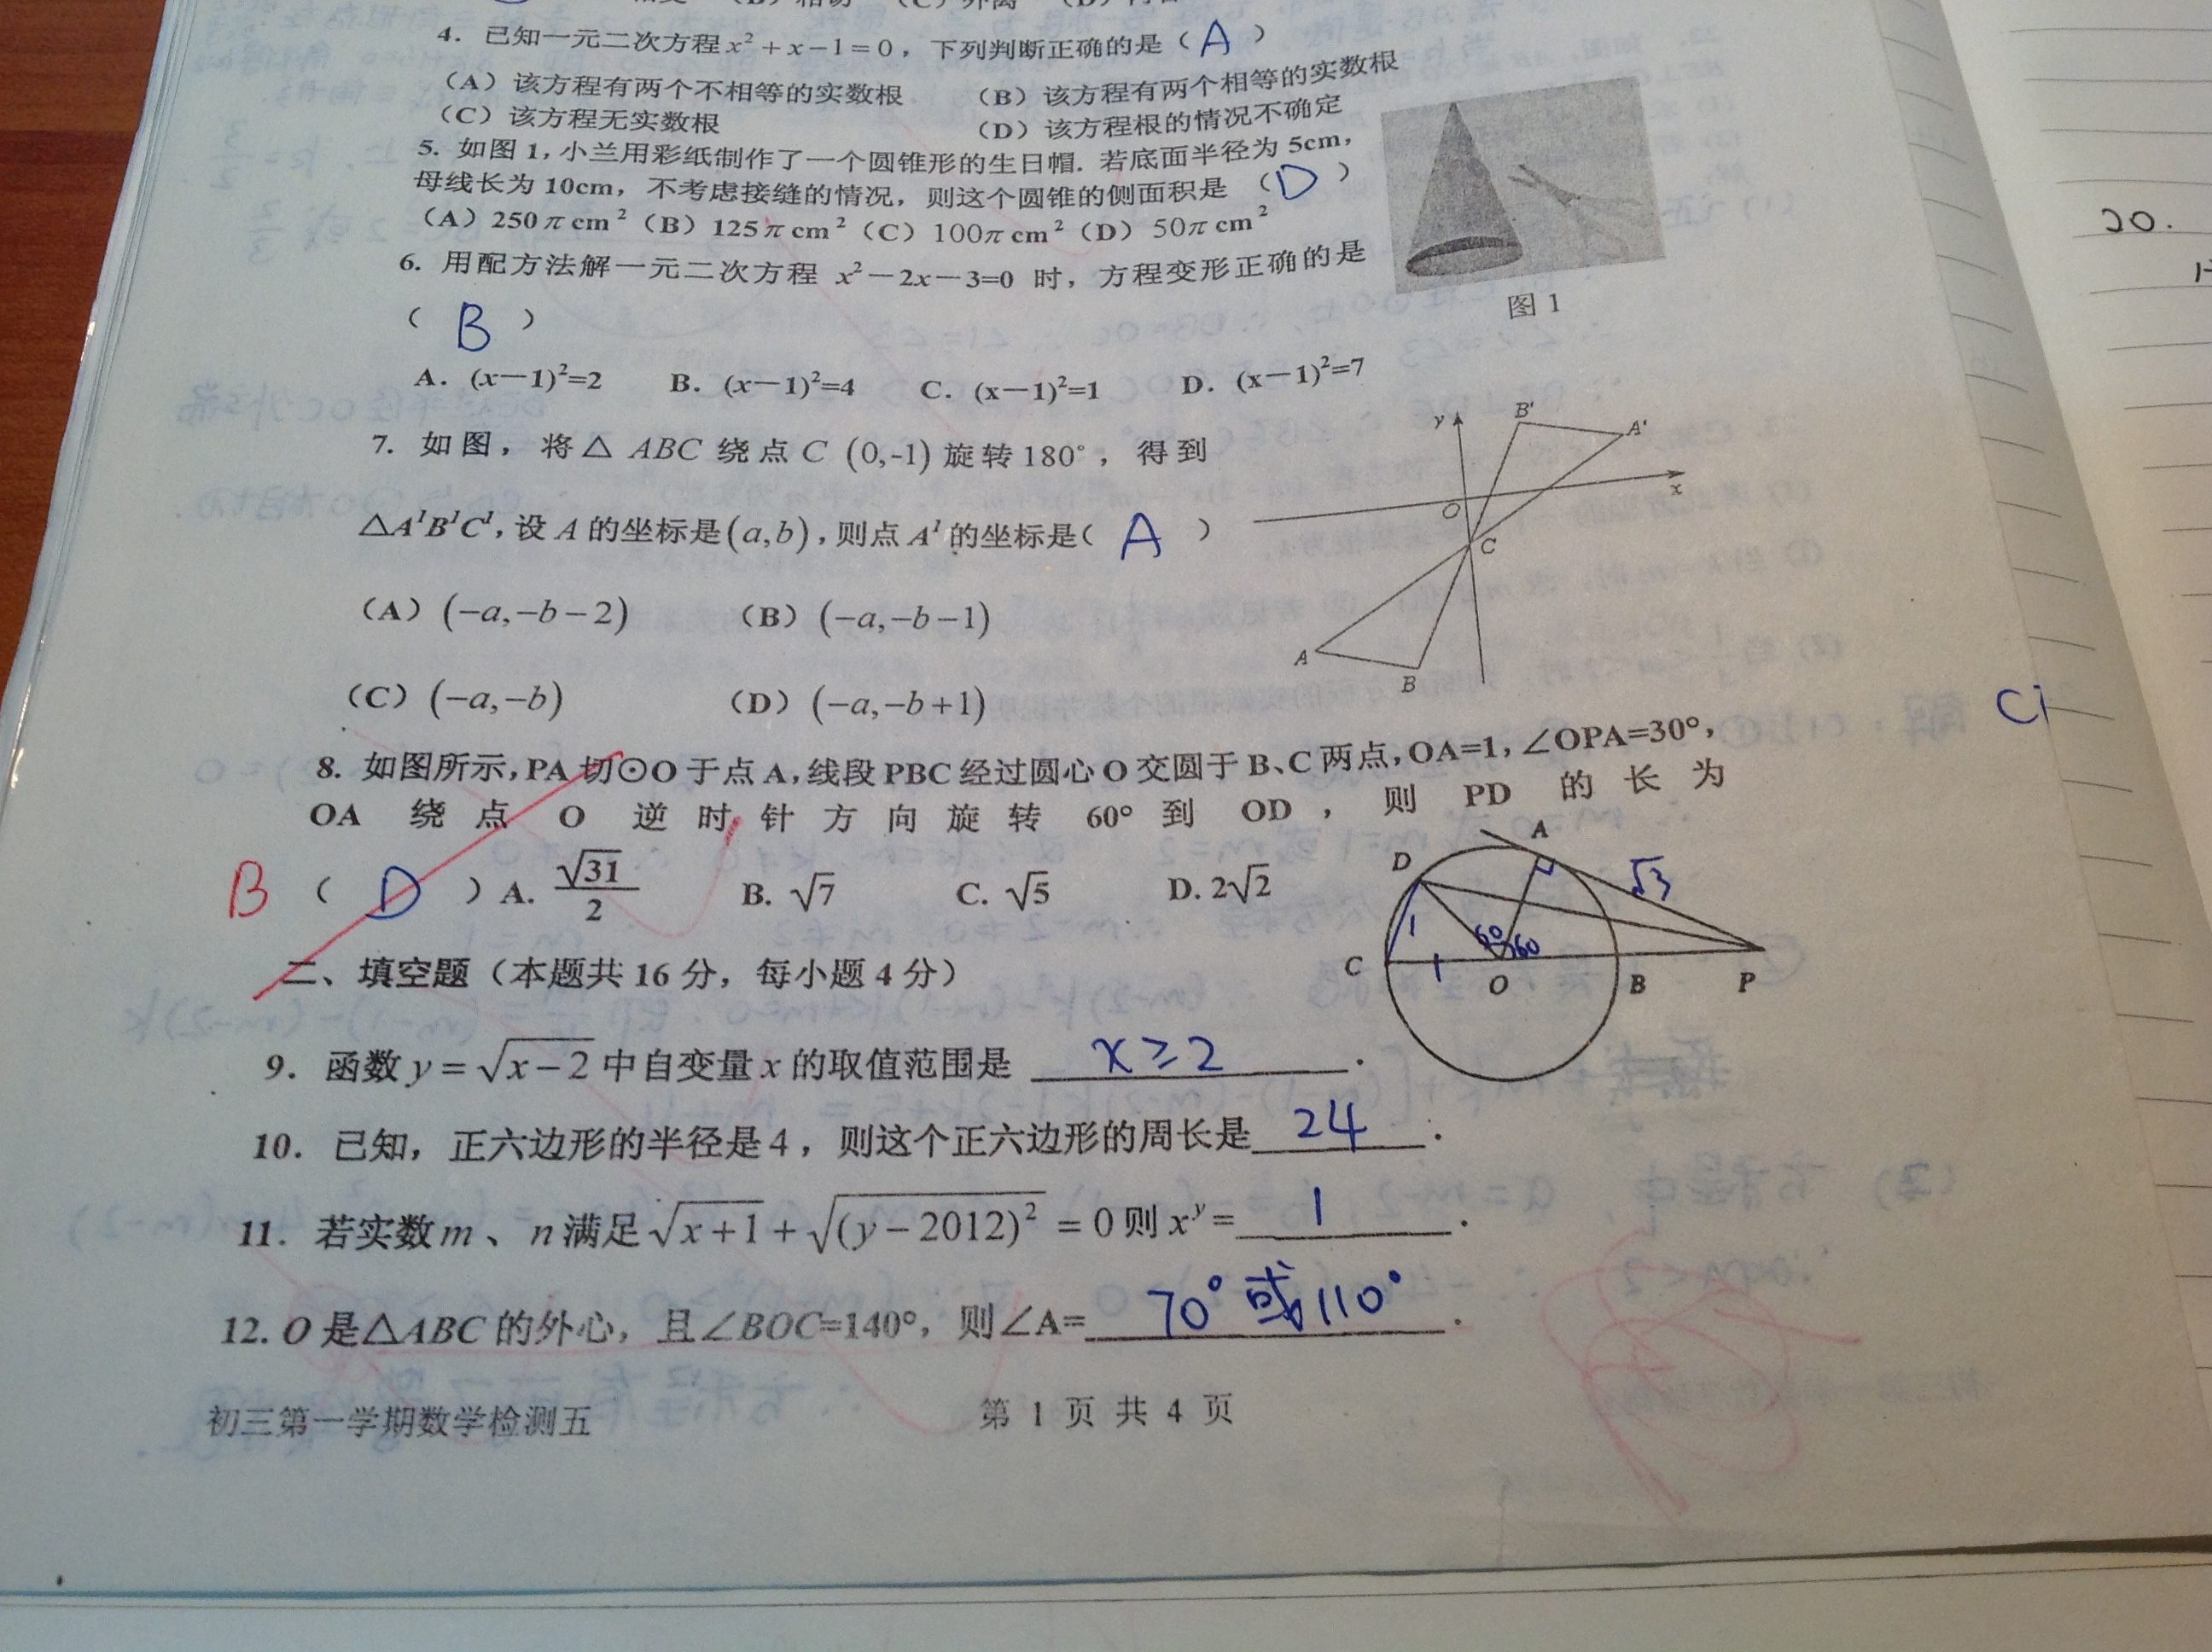 4. 已知一元二次方程 x²+x−1=0，下列判断正确的是（ A ）
（A）该方程有两个不相等的实数根 （B）该方程有两个相等的实数根
（C）该方程无实数根 （D）该方程根的情况不确定
5. 如图 1, 小兰用彩纸制作了一个圆锥形的生日帽. 若底面半径为 5cm，
母线长为 10cm，不考虑接缝的情况，则这个圆锥的侧面积是（ D ）
（A）250π cm²（B）125π cm²（C）100π cm²（D）50π cm²
图 1
6. 用配方法解一元二次方程 x²−2x−3=0 时，方程变形正确的是
（ B ）
A. (x−1)²=2 B. (x−1)²=4 C. (x−1)²=1 D. (x−1)²=7
7. 如图，将△ ABC 绕点 C (0,-1) 旋转180°，得到
△A'B'C', 设 A 的坐标是(a,b), 则点 A' 的坐标是( A )
（A）(−a,−b−2) （B）(−a,−b−1)
（C）(−a,−b) （D）(−a,−b+1)
y B' A'
x
O
C
A
B
8. 如图所示, PA 切⊙O 于点 A, 线段 PBC 经过圆心 O 交圆于 B、C 两点, OA=1, ∠OPA=30°,
OA 绕点 O 逆时针方向旋转 60° 到 OD ，则 PD 的长为
B （ D ）A. √31/2 B. √7 C. √5 D. 2√2
A
D √3
1 60 60
C 1 O B P
二、填空题（本题共 16 分，每小题 4 分）
9. 函数 y=√(x−2) 中自变量 x 的取值范围是 x≥2 .
10. 已知，正六边形的半径是4，则这个正六边形的周长是 24 .
11. 若实数 m 、 n 满足 √(x+1)+√((y−2012)²) =0 则 xʸ= 1 .
12. O 是△ABC 的外心，且∠BOC=140°，则∠A= 70°或110° .
初三第一学期数学检测五 第 1 页 共 4 页
20.